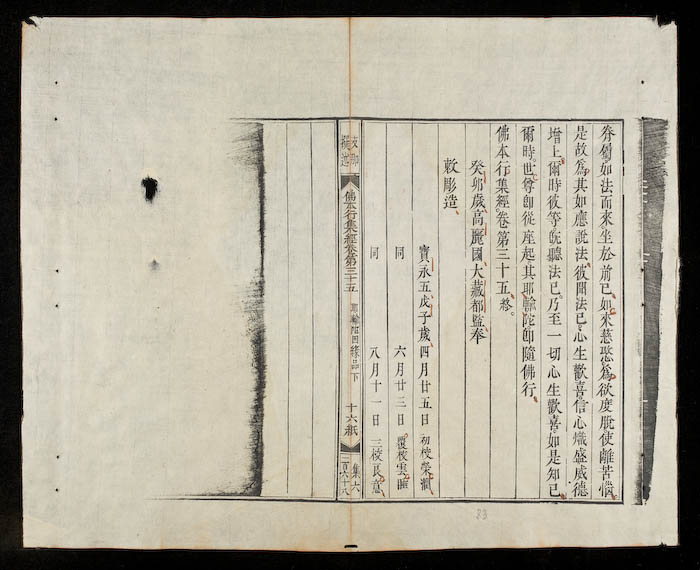 眷屬如法而來坐於前已如來慈愍為欲度脫使離苦惱
是故為其如應說法彼聞法已心生歡喜信心熾盛威德
增上爾時彼等既聽法已乃至一切心生歡喜如是知已
爾時世尊即從座起其耶輸陀即隨佛行
佛本行集經卷第三十五 終
癸卯歲高麗國大藏都監奉
敕彫造
寶永五戊子歲四月廿五日 初校榮
同 六月廿三日 覆校雲
同 八月十一日 三校良意
支那撰述
佛本行集經卷第三十五 耶輸陀因緣品下 十六紙
集六
二百六十八
83